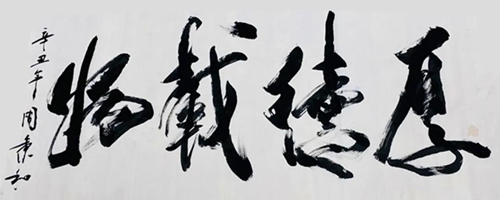 厚德載物
辛丑年周秉和